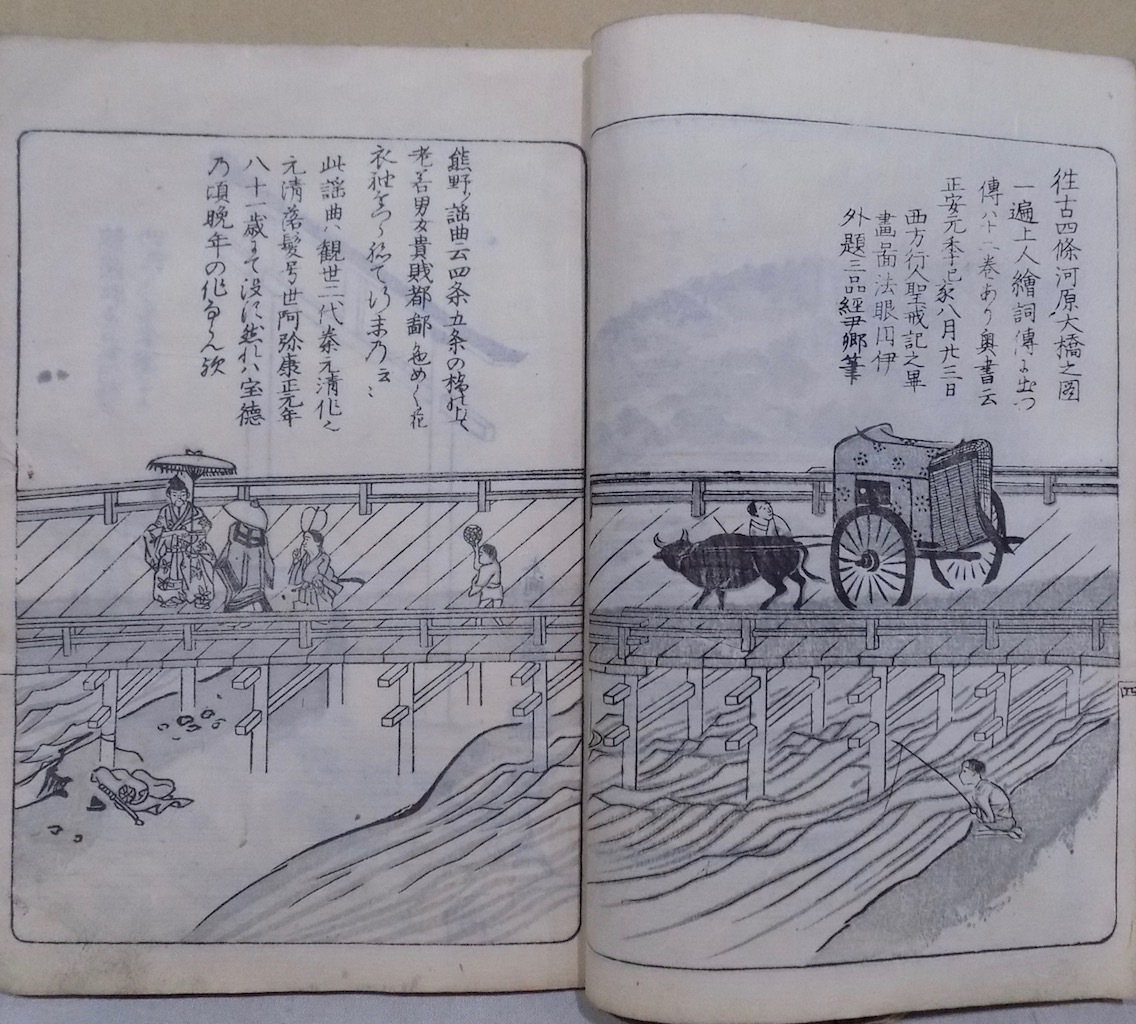 往古四條河原大橋之図
一遍上人繪詞傳に出つ
傳ハ十二巻あり奥書云
正安元季己亥八月廿三日
西方行人聖戒記之畢
畫啚法眼円伊
外題三品經尹卿筆
熊野ノ謡曲云四条五条の橋の上
老若男女貴賎都鄙色めく花
衣袖をつらねて行末の云〻
此謡曲ハ観世三代秦元清作之
元清落髪号世阿弥康正元年
八十一歳にて没す然れハ宝徳
乃頃晩年の作ならん歟
四